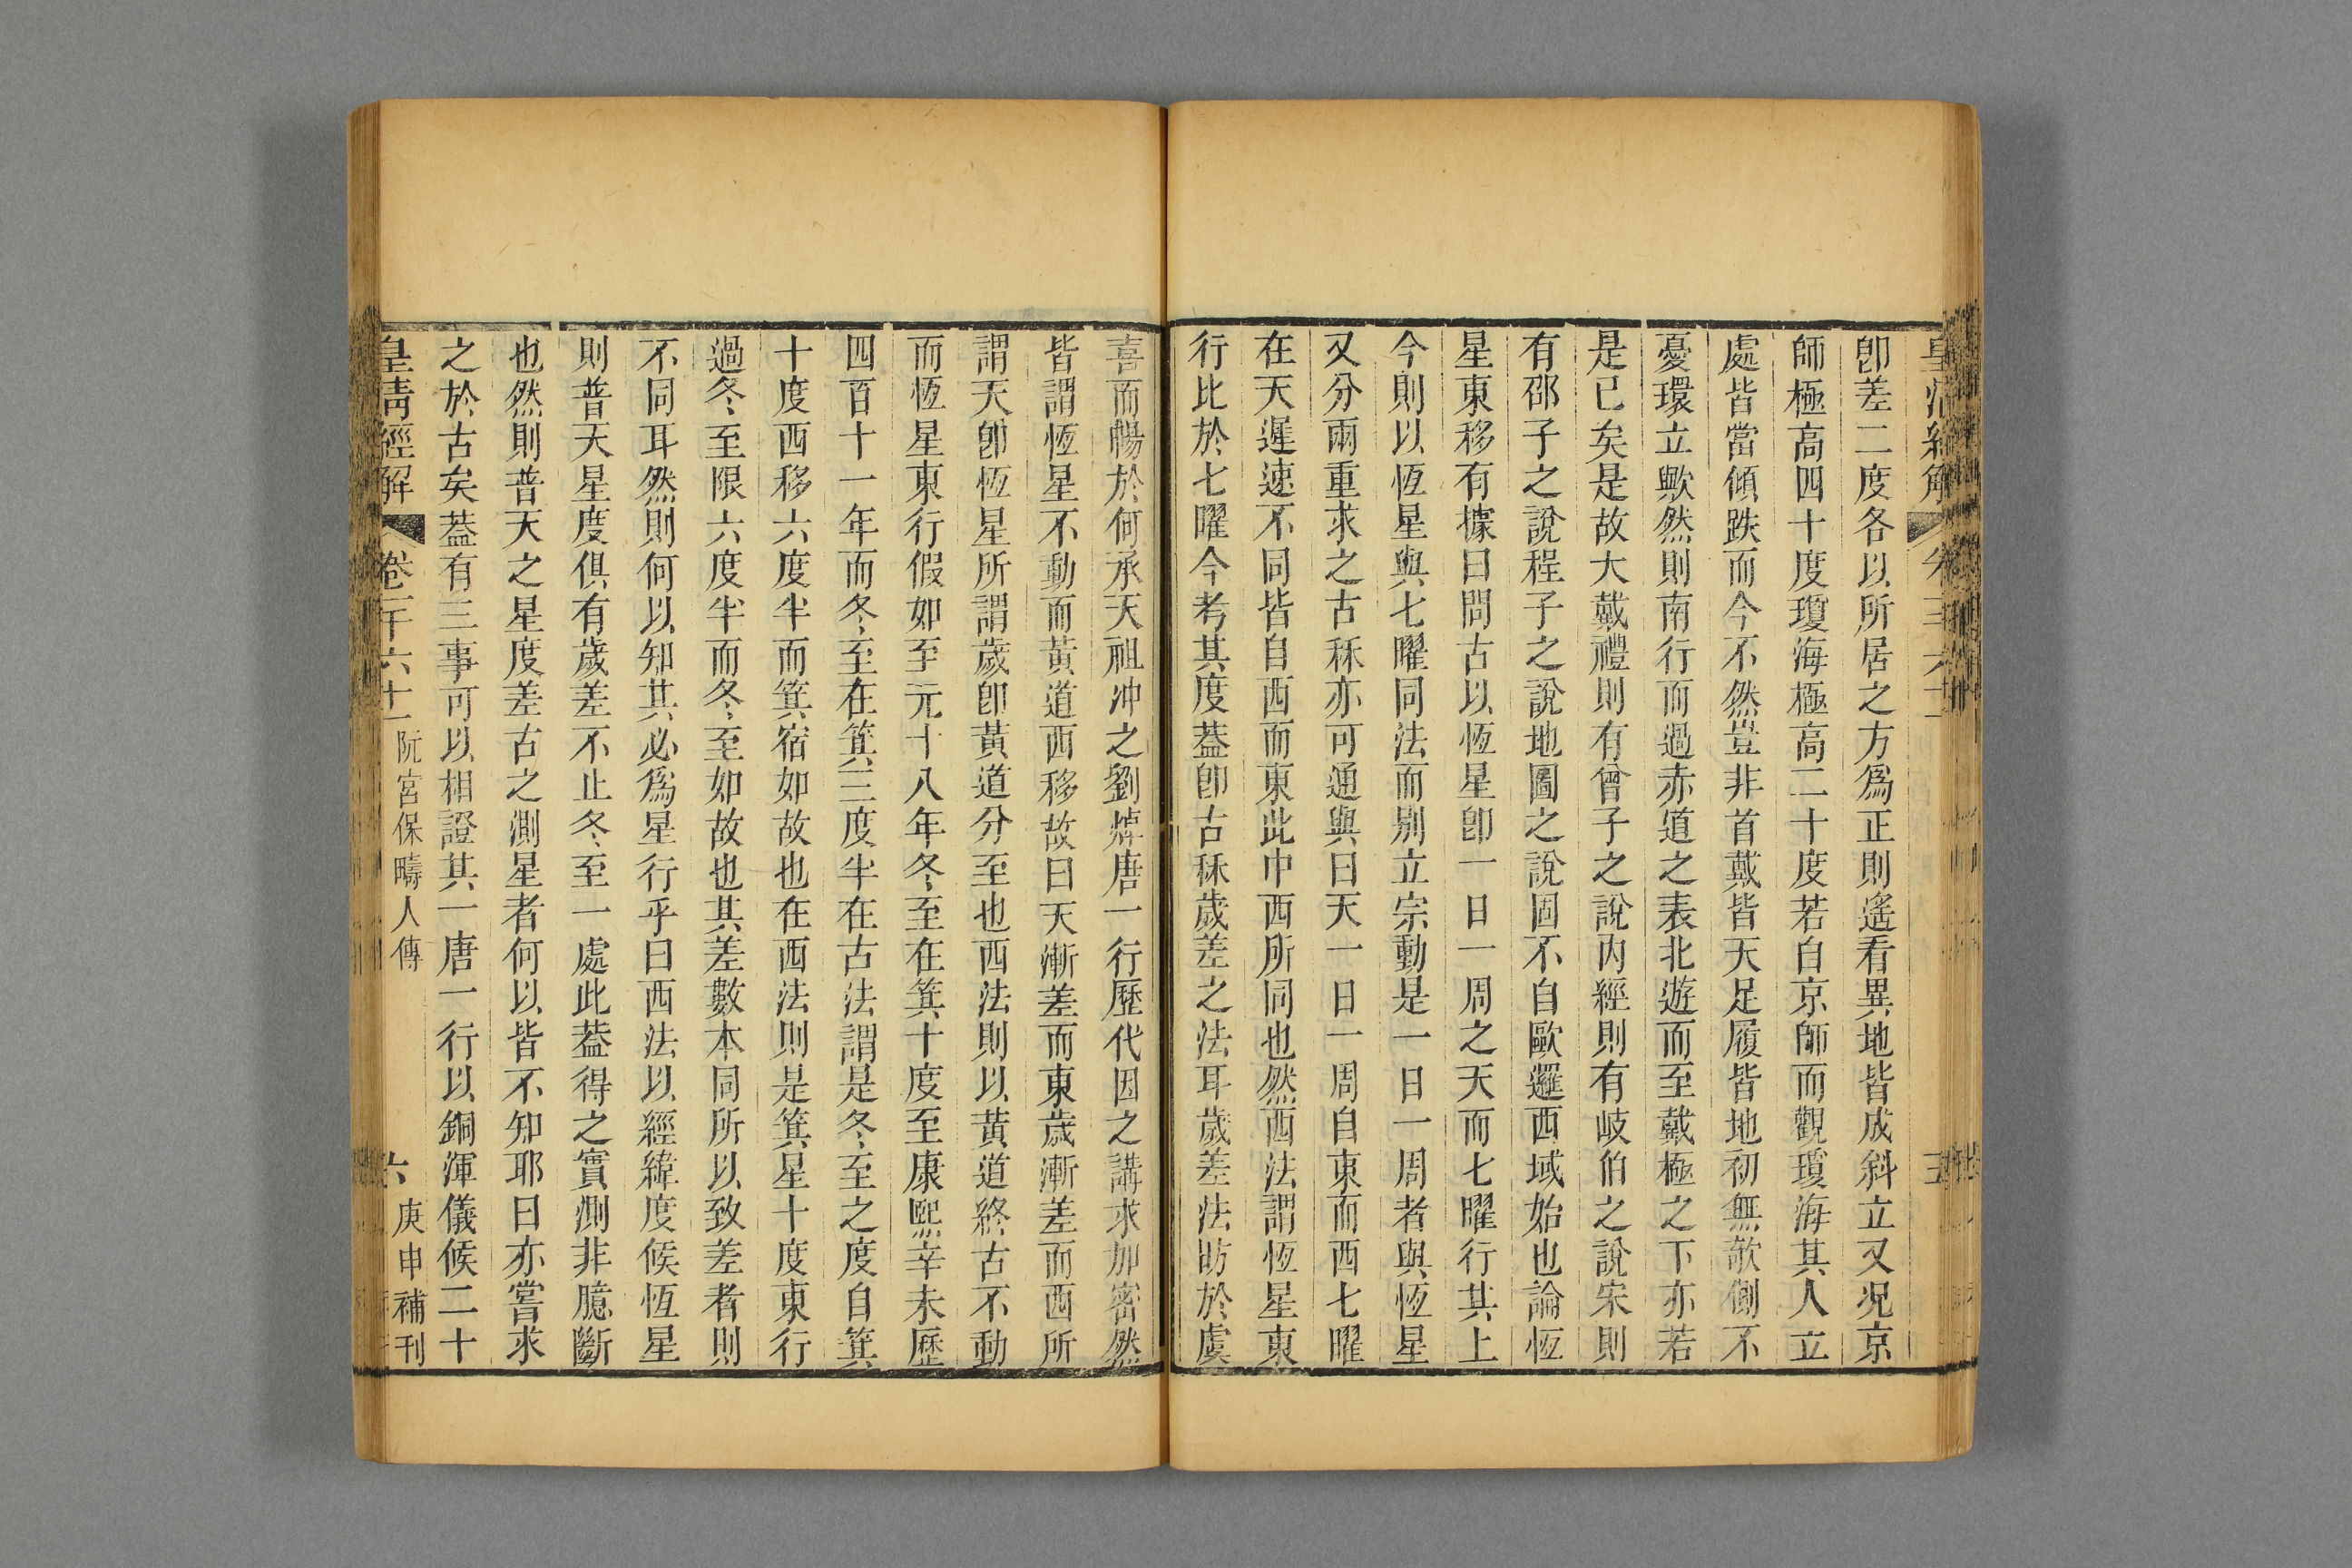 卽差二度各以所居之方爲正則遙看異地皆成斜立又况京
師極高四十度瓊海極高二十度若自京師而觀瓊海其人立
處皆當傾跌而今不然豈非首戴皆天足履皆地初無欹側不
憂環立歟然則南行而過赤道之表北遊而至戴極之下亦若
是已矣是故大戴禮則有曾子之說内經則有岐伯之說宋則
有邵子之說程子之說地圖之說固不自歐邏西域始也論恆
星東移有據曰問古以恆星卽一日一周之天而七曜行其上
今則以恆星與七曜同法而别立宗動是一日一周者與恆星
又分兩重求之古秝亦可通與曰天一日一周自東而西七曜
在天遲速不同皆自西而東此中西所同也然西法謂恆星東
行比於七曜今考其度葢卽古秝歲差之法耳歲差法昉於虞
喜而暢於何承天祖冲之劉焯唐一行歷代因之講求加密然
皆謂恆星不動而黃道西移故曰天漸差而東歲漸差而西所
謂天卽恆星所謂歲卽黃道分至也西法則以黃道終古不動
而恆星東行假如至元十八年冬至在箕十度至康熙辛未歷
四百十一年而冬至在箕三度半在古法謂是冬至之度自箕
十度西移六度半而箕宿如故也在西法則是箕星十度東行
過冬至限六度半而冬至如故也其差數本同所以致差者則
不同耳然則何以知其必爲星行乎曰西法以經緯度候恆星
則普天星度俱有歲差不止冬至一處此葢得之實測非臆斷
也然則普天之星度差古之測星者何以皆不知耶曰亦嘗求
之於古矣葢有三事可以相證其一唐一行以銅渾儀候二十
皇清經解 卷千六十一 阮宮保疇人傳 六 庚申補刊